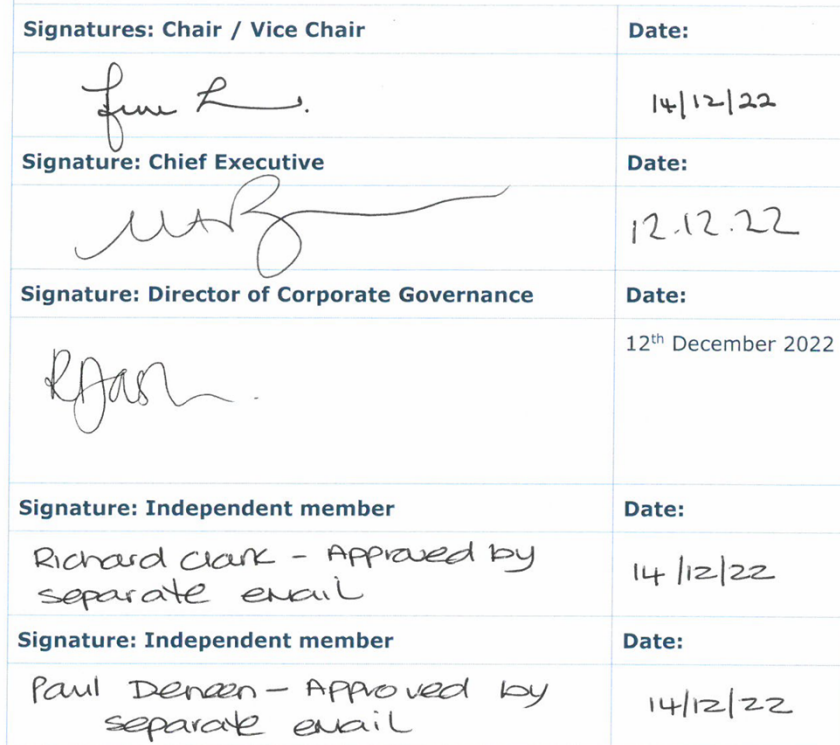 Signatures: Chair / Vice Chair Date:
14/12/22
Signature: Chief Executive Date:
12.12.22
Signature: Director of Corporate Governance Date:
12th December 2022
Signature: Independent member Date:
Richard Clark - Approved by
separate email 14/12/22
Signature: Independent member Date:
Paul Deneen - Approved by
separate email 14/12/22